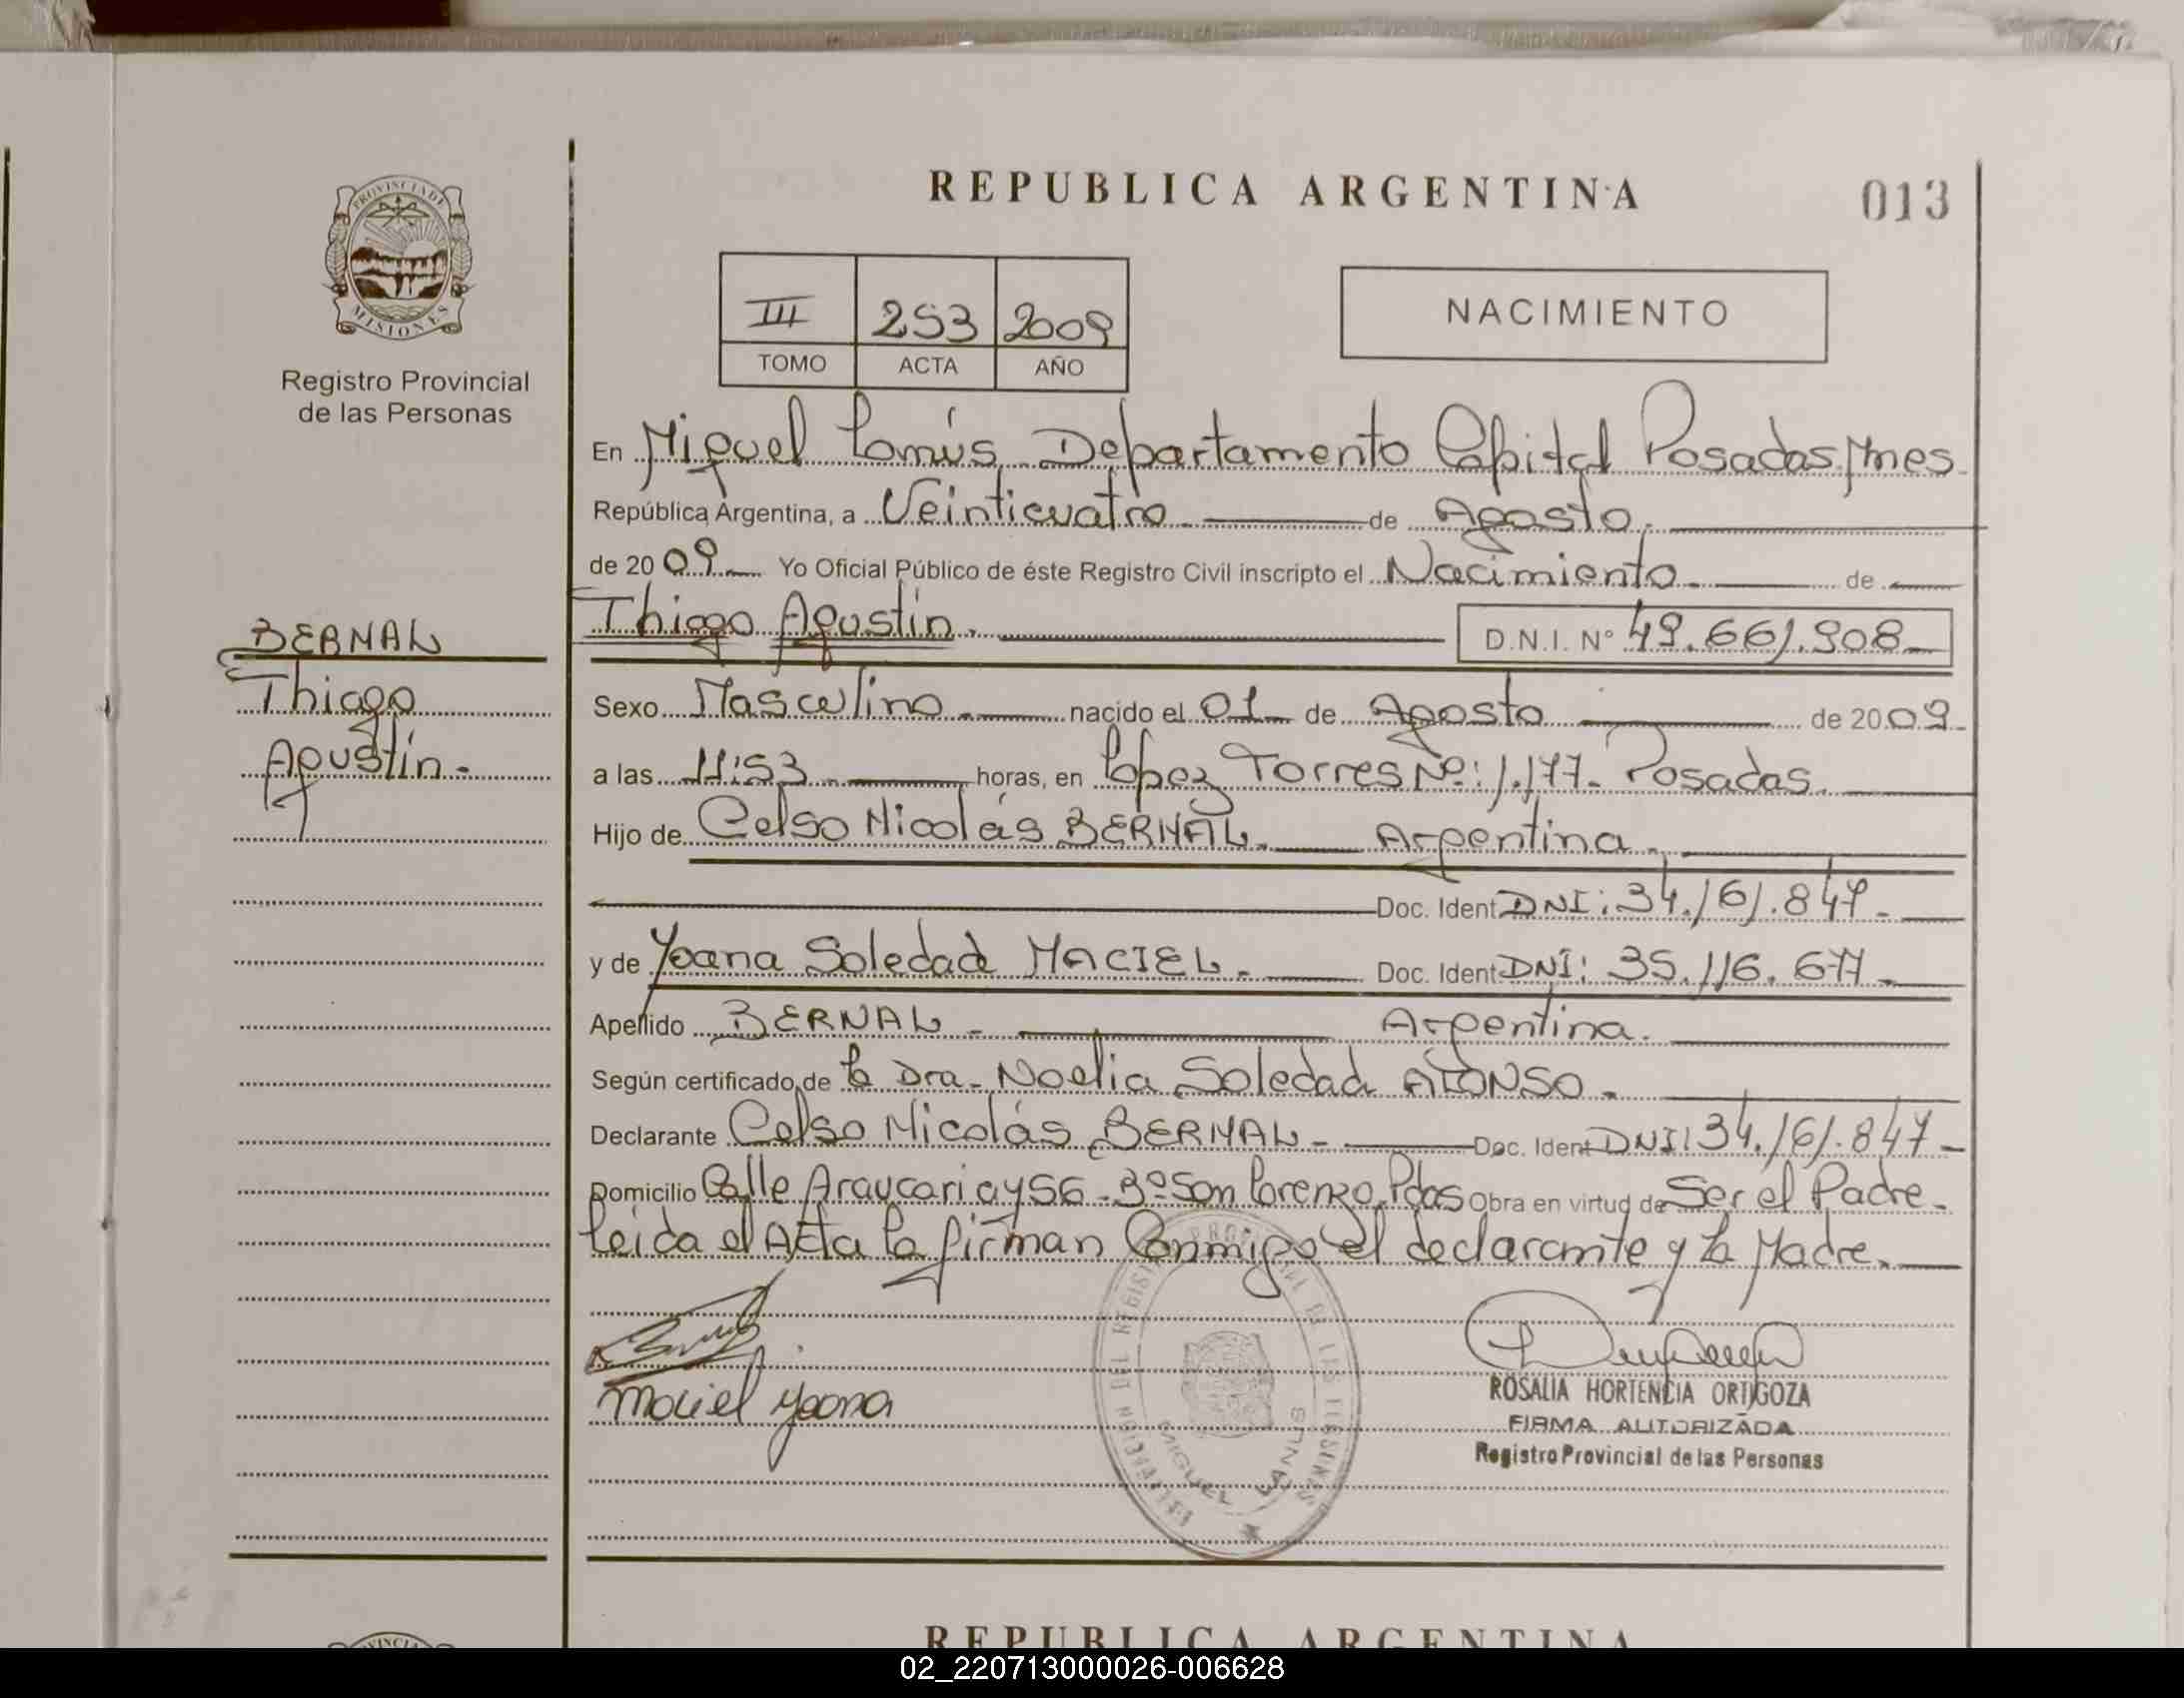 REPUBLICA ARGENTINA
013
PROVINCIA DE
MISIONES
Registro Provincial
de las Personas
III 253 2009
TOMO ACTA AÑO
NACIMIENTO
En Miguel Lanús Departamento Capital Posadas Mnes
República Argentina, a Veinticuatro de Agosto.
de 2009 Yo Oficial Público de éste Registro Civil inscripto el Nacimiento. de
Thiago Agustín. D.N.I. Nº 49.661.908
BERNAL
Thiago
Agustín.
Sexo Masculino. nacido el 01 de Agosto de 2009
a las 11:53 horas, en López Torres Nº: 1.177. Posadas.
Hijo de Celso Nicolás BERNAL. Argentina.
Doc. Ident DNI: 34.161.847.
y de Yoana Soledad MACIEL. Doc. Ident DNI: 35.116.677.
Apellido BERNAL. Argentina.
Según certificado de la Dra. Noelia Soledad ALONSO.
Declarante Celso Nicolás BERNAL. Doc. Ident DNI: 34.161.847
Domicilio Calle Araucaria y 56. Bº San Lorenzo. Pdas Obra en virtud de Ser el Padre.
Leida el Acta la firman Conmigo el declarante y la Madre.
Maciel Yoana
MIGUEL LANUS
ROSALIA HORTENCIA ORTIGOZA
FIRMA AUTORIZADA
Registro Provincial de las Personas
REPUBLICA ARGENTINA
02_220713000026-006628